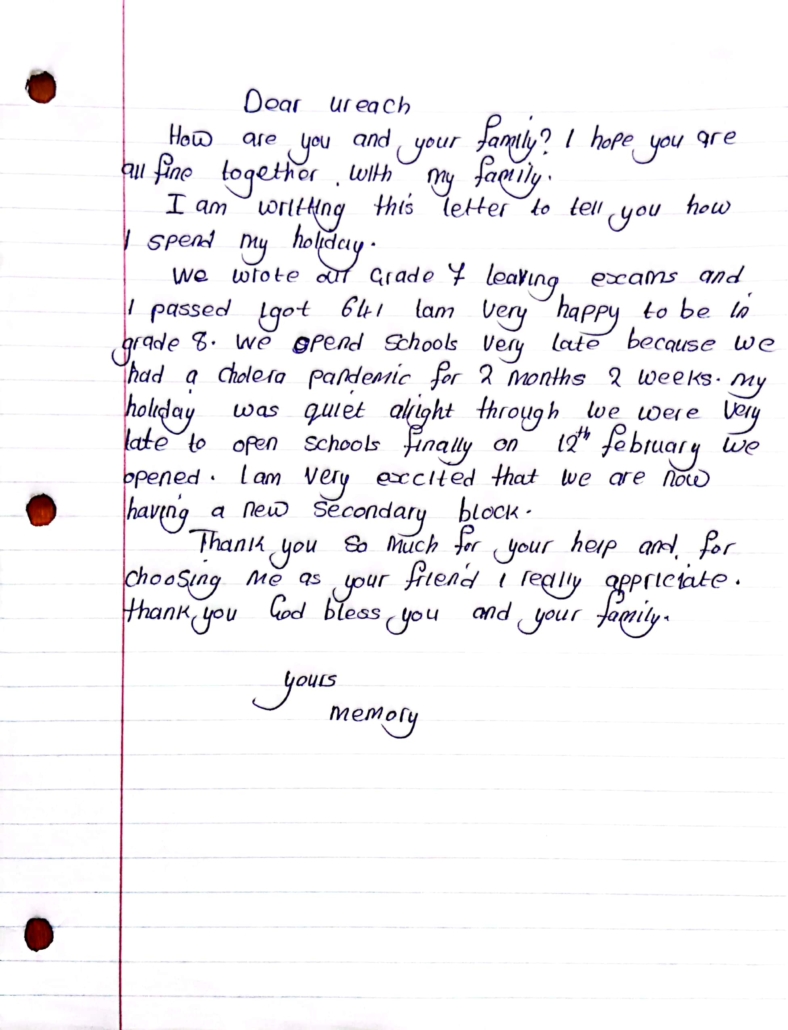 Dear ureach
How are you and your family? I hope you are
all fine together. with my family.
I am writting this letter to tell you how
I spend my holiday.
We wrote our Grade 7 leaving exams and
I passed I got 641 Iam very happy to be in
grade 8. We opend schools very late because we
had a cholera pandemic for 2 months 2 weeks. my
holiday was quiet alright through we were very
late to open schools finally on 12th february we
opened. Iam very exccited that we are now
having a new secondary block.
Thank you so much for your help and for
choosing me as your friend I really appriciate.
thank you God bless you and your family.
yours
memory